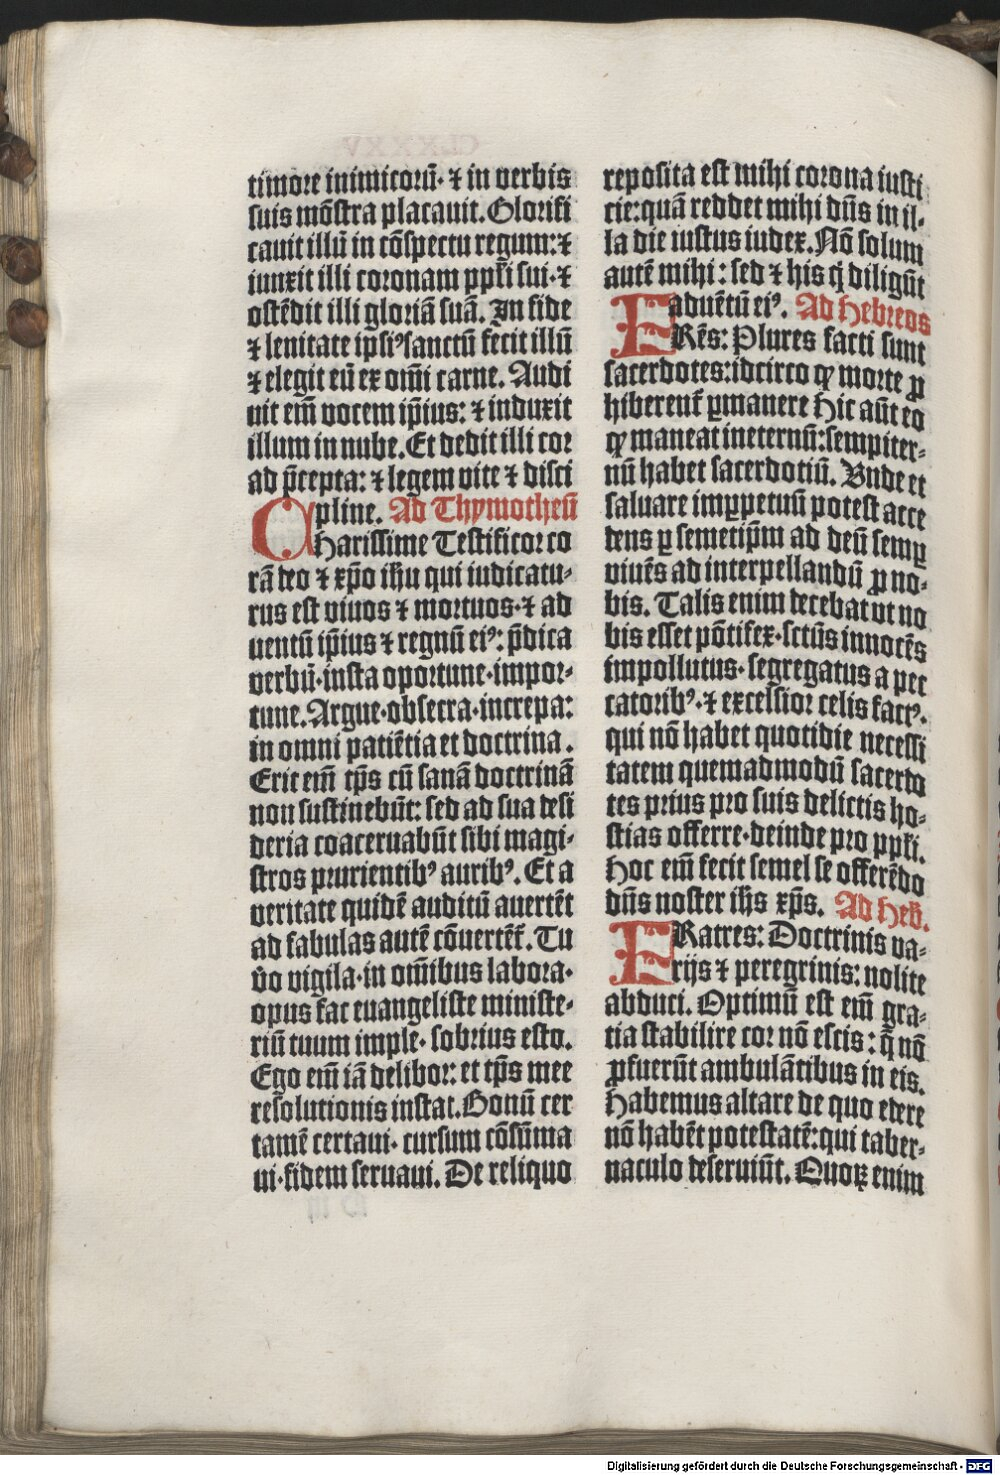 timore inimicorū· ⁊ in verbis
suis mōstra placauit. Glorifi
cauit illū in cōspectu regum: ⁊
iunxit illi coronam ppl̄i sui· ⁊
ostēdit illi gloriā suā. In fide
⁊ lenitate ipsiꝰ sanctū fecit illū
⁊ elegit eū ex om̄i carne. Audi
uit em̄ vocem ip̄ius: ⁊ induxit
illum in nube. Et dedit illi cor
ad p̄cepta: ⁊ legem vite ⁊ disci
pline. Ad Thymotheū
Charissime Testificor co
rā deo ⁊ xp̄o ih̄u qui iudicatu-
rus est viuos ⁊ mortuos· ⁊ ad
uentū ip̄ius ⁊ regnū eiꝰ: p̄dica
verbū· insta oportune· impor-
tune. Argue· obsecra· increpa:
in omni patiētia et doctrina.
Erit em̄ tp̄s cū sanā doctrinā
non sustinebūt: sed ad sua desi
deria coaceruabūt sibi magi-
stros prurientibꝰ auribꝰ. Et a
veritate quidē auditū auertēt
ad fabulas autē cōuertēt̄. Tu
v̄o vigila· in om̄ibus labora·
opus fac euangeliste ministe-
riū tuum imple· sobrius esto.
Ego em̄ iā delibor: et tp̄s mee
resolutionis instat. Bonū cer
tamē certaui· cursum cōsūma
ui· fidem seruaui. De reliquo
reposita est mihi corona iusti
cie: quā reddet mihi dn̄s in il-
la die iustus iudex. Nō solum
autē mihi: sed ⁊ his q̄ diligūt
aduētū eiꝰ. Ad Hebreos
FRēs: Plures facti sunt
sacerdotes: idcirco ꝙ morte ꝓ
hiberent̄ ꝑmanere Hic aūt eo
ꝙ maneat ineternū: sempiter-
nū habet sacerdotiū. Vnde et
saluare imꝑpetuū potest acce
dens ꝑ semetip̄m ad deū semꝑ
viuēs ad interpellandū ꝓ no-
bis. Talis enim decebat vt no
bis esset pōtifex· sctūs innocēs
impollutus· segregatus a pec
catoribꝰ· ⁊ excelsior celis factꝰ.
qui nō habet quotidie necessi
tatem quemadmodū sacerdo
tes prius pro suis delictis ho-
stias offerre· deinde pro ppl̄i.
Hoc em̄ fecit semel se offerēdo
dn̄s noster ih̄s xp̄s. Ad Heb̄.
FRatres: Doctrinis va-
rijs ⁊ peregrinis: nolite
abduci. Optimū est em̄ gra-
tia stabilire cor nō escis: q̄ nō
ꝓfuerūt ambulātibus in eis.
Habemus altare de quo edere
nō habēt potestatē: qui taber-
naculo deseruiūt. Quoꝝ enim
Digitalisierung gefördert durch die Deutsche Forschungsgemeinschaft - DFG